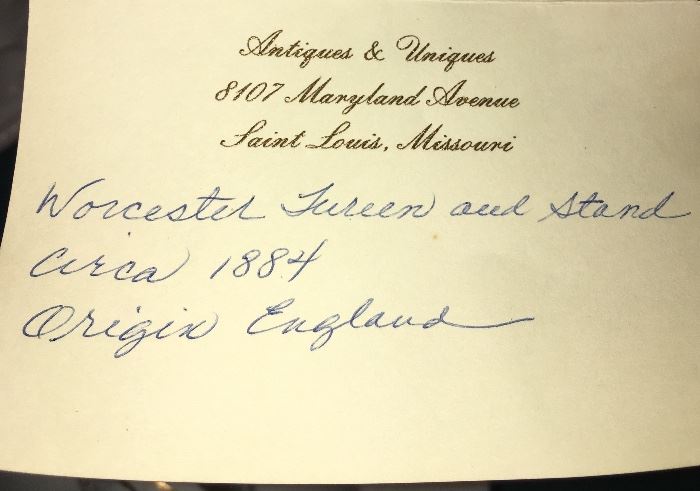 Antiques & Uniques
8107 Maryland Avenue
Saint Louis, Missouri
Worcester Tureen and Stand
Circa 1884
Origin England